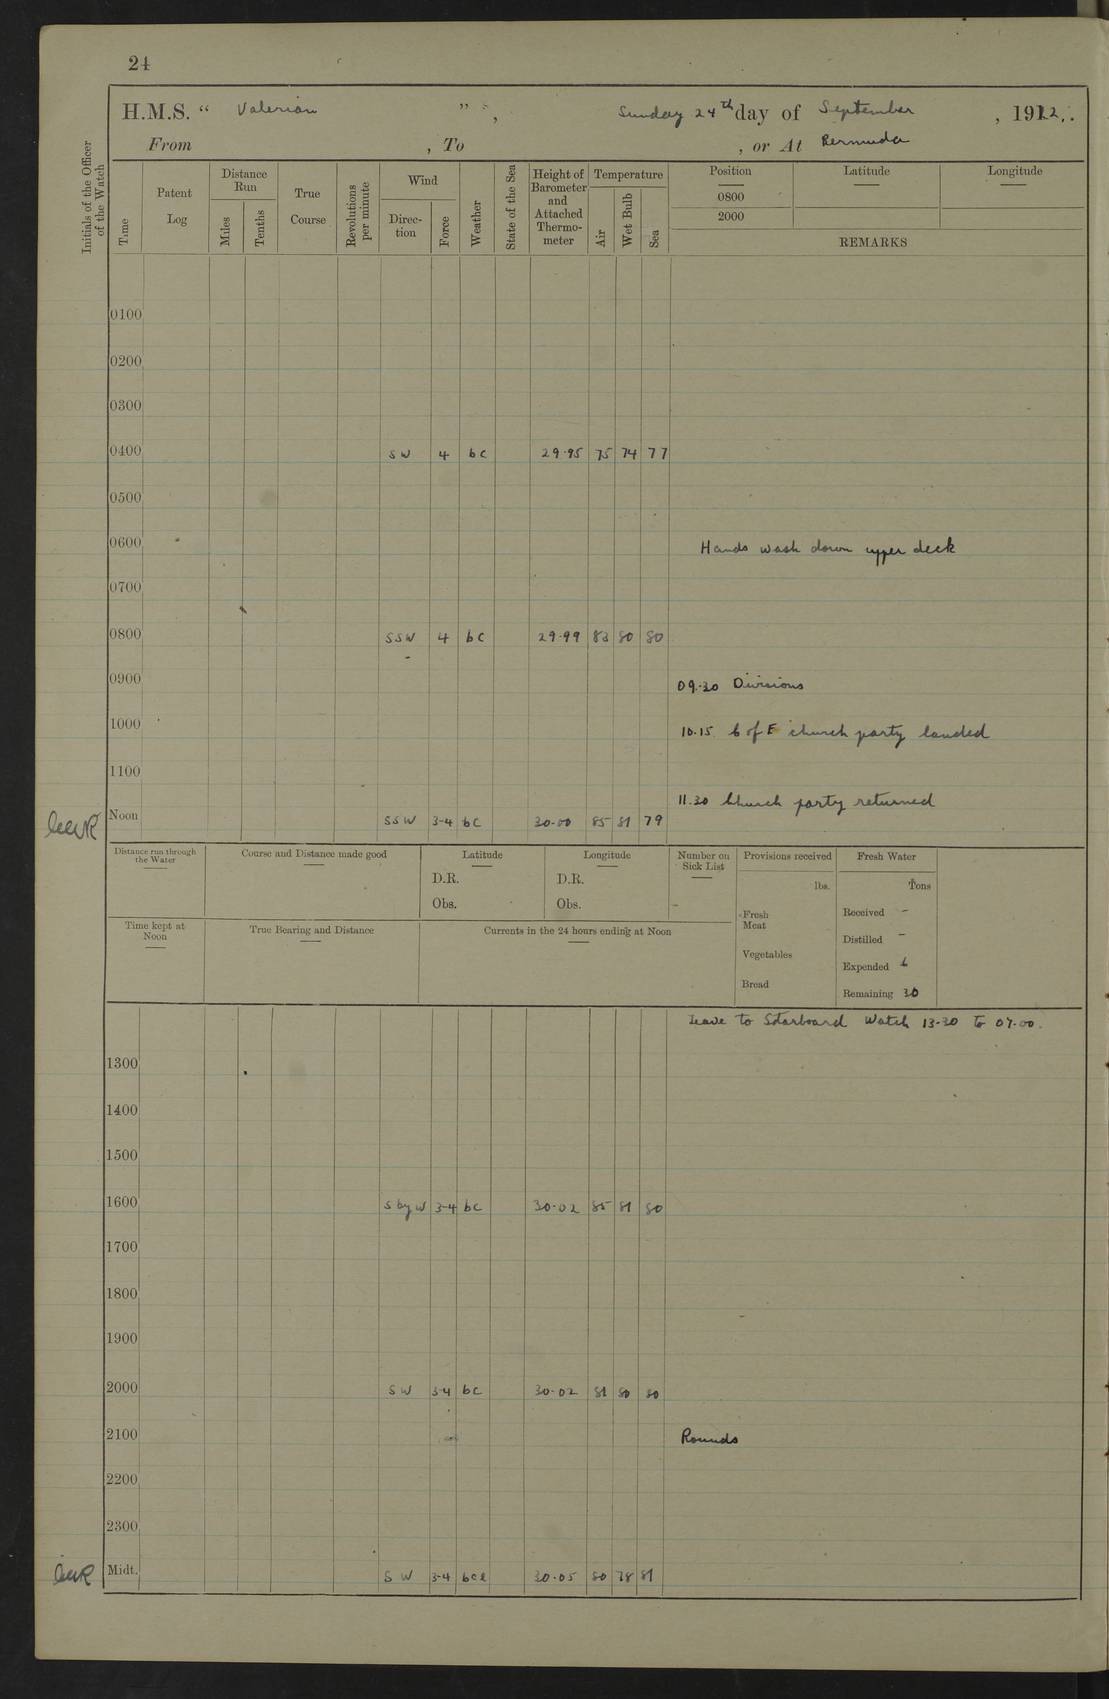 24
H.M.S. “ Valerian ”, Sunday 24th day of September, 1922.
From , To , or At Bermuda
Initials of the Officer of the Watch
Time
Patent Log
Distance Run
Miles
Tenths
True Course
Revolutions per minute
Wind
Direction
Force
Weather
State of the Sea
Height of Barometer and Attached Thermometer
Temperature
Air
Wet Bulb
Sea
Position Latitude Longitude
0800
2000
REMARKS
0100
0200
0300
0400 SW 4 bc 29.95 75 74 77
0500
0600 Hands wash down upper deck
0700
0800 SSW 4 bc 29.99 83 80 80
0900 09.30 Divisions
1000 10.15 C of E church party landed
1100
11.30 Church party returned
Noon SSW 3-4 bc 30.00 85 81 79
Distance run through the Water
Course and Distance made good
Latitude
D.R.
Obs.
Longitude
D.R.
Obs.
Number on Sick List
-
Provisions received
lbs.
Fresh Meat
Vegetables
Bread
Fresh Water
Tons
Received -
Distilled -
Expended 6
Remaining 30
Time kept at Noon
True Bearing and Distance
Currents in the 24 hours ending at Noon
Leave to Starboard Watch 13-30 to 07.00.
1300
1400
1500
1600 S by W 3-4 bc 30.02 85 81 80
1700
1800
1900
2000 SW 3-4 bc 30.02 81 80 80
2100 Rounds
2200
2300
Midt. SW 3-4 bcl 30.05 80 78 81